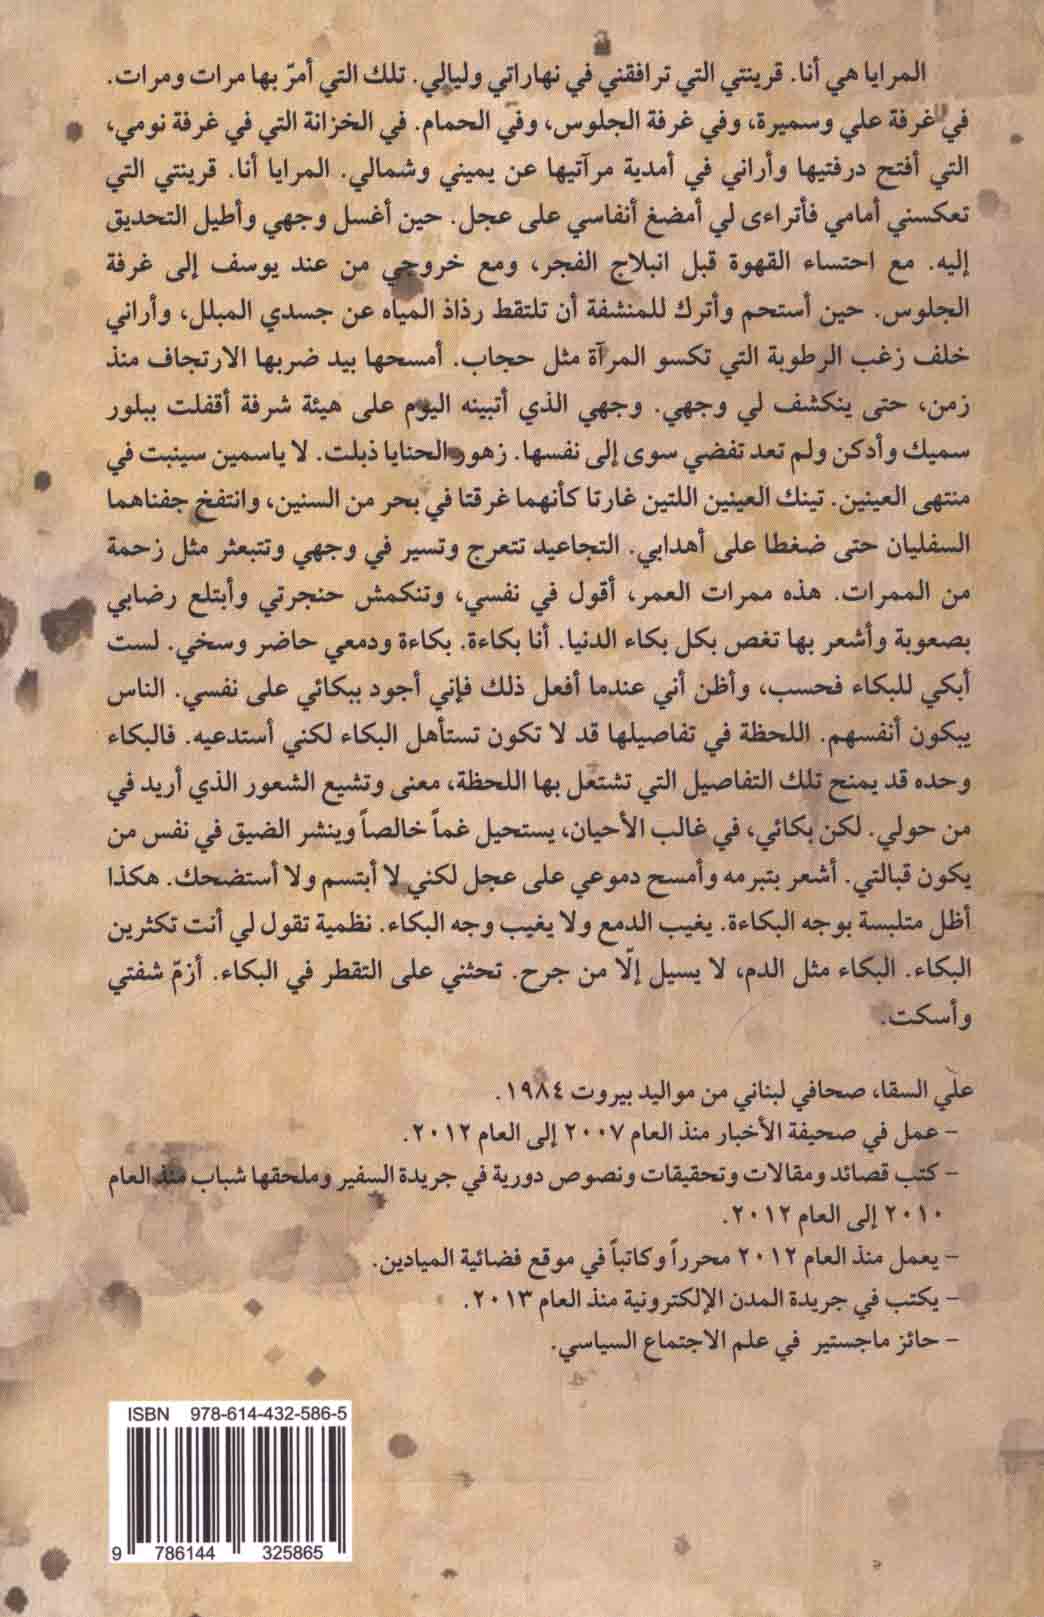 المرايا هي أنا. قرينتي التي ترافقني في نهاراتي وليالي. تلك التي أمرّ بها مرات ومرات.
في غرفة علي وسميرة، وفي غرفة الجلوس، وفي الحمام. في الخزانة التي في غرفة نومي،
التي أفتح درفتيها وأراني في أمدية مرآتيها عن يميني وشمالي. المرايا أنا. قرينتي التي
تعكسني أمامي فأتراءى لي أمضغ أنفاسي على عجل. حين أغسل وجهي وأطيل التحديق
إليه. مع احتساء القهوة قبل انبلاج الفجر، ومع خروجي من عند يوسف إلى غرفة
الجلوس. حين أستحم وأترك للمنشفة أن تلتقط رذاذ المياه عن جسدي المبلل، وأراني
خلف زغب الرطوبة التي تكسو المرآة مثل حجاب. أمسحها بيد ضربها الارتجاف منذ
زمن، حتى ينكشف لي وجهي. وجهي الذي أتبينه اليوم على هيئة شرفة أقفلت ببلور
سميك وأدكن ولم تعد تفضي سوى إلى نفسها. زهور الحنايا ذبلت. لا ياسمين سينبت في
منتهى العينين. تينك العينين اللتين غارتا كأنهما غرقتا في بحر من السنين، وانتفخ جفناهما
السفليان حتى ضغطا على أهدابي. التجاعيد تتعرج وتسير في وجهي وتتبعثر مثل زحمة
من الممرات. هذه ممرات العمر، أقول في نفسي، وتنكمش حنجرتي وأبتلع رضابي
بصعوبة وأشعر بها تغص بكل بكاء الدنيا. أنا بكاءة. بكاءة ودمعي حاضر وسخي. لست
أبكي للبكاء فحسب، وأظن أني عندما أفعل ذلك فإني أجود ببكائي على نفسي. الناس
يبكون أنفسهم. اللحظة في تفاصيلها قد لا تكون تستأهل البكاء لكني أستدعيه. فالبكاء
وحده قد يمنح تلك التفاصيل التي تشتعل بها اللحظة، معنى وتشيع الشعور الذي أريد في
من حولي. لكن بكائي، في غالب الأحيان، يستحيل غماً خالصاً وينشر الضيق في نفس من
يكون قبالتي. أشعر بتبرمه وأمسح دموعي على عجل لكني لا أبتسم ولا أستضحك. هكذا
أظل متلبسة بوجه البكاءة. يغيب الدمع ولا يغيب وجه البكاء. نظمية تقول لي أنت تكثرين
البكاء. البكاء مثل الدم، لا يسيل إلّا من جرح. تحثني على التقطر في البكاء. أزمّ شفتي
وأسكت.
علي السقا، صحافي لبناني من مواليد بيروت ١٩٨٤.
- عمل في صحيفة الأخبار منذ العام ٢٠٠٧ إلى العام ٢٠١٢.
- كتب قصائد ومقالات وتحقيقات ونصوص دورية في جريدة السفير وملحقها شباب منذ العام
٢٠١٠ إلى العام ٢٠١٢.
- يعمل منذ العام ٢٠١٢ محرراً وكاتباً في موقع فضائية الميادين.
- يكتب في جريدة المدن الإلكترونية منذ العام ٢٠١٣.
- حائز ماجستير في علم الاجتماع السياسي.
ISBN 978-614-432-586-5
9 786144 325865